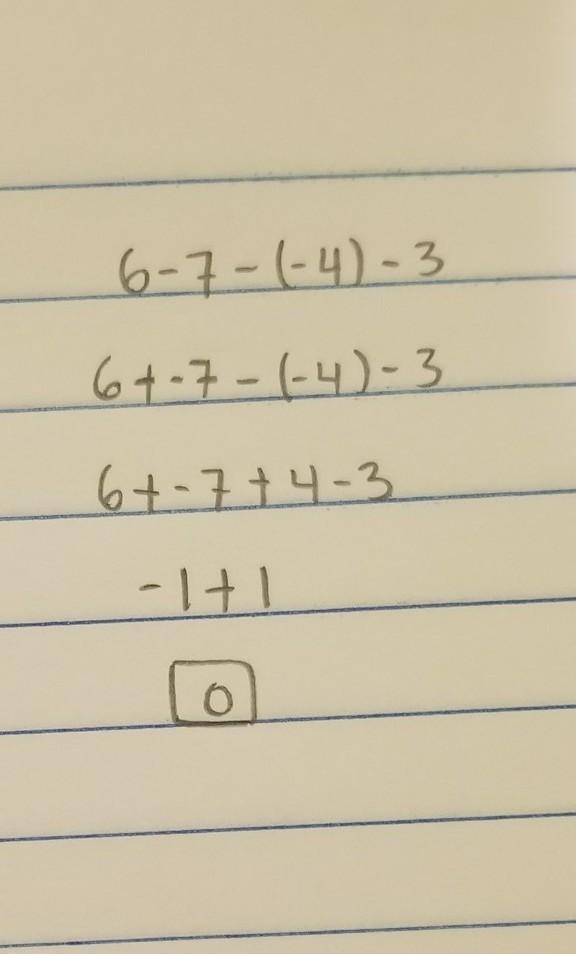 6-7-(-4)-3
6+-7-(-4)-3
6+-7+4-3
-1+1
0